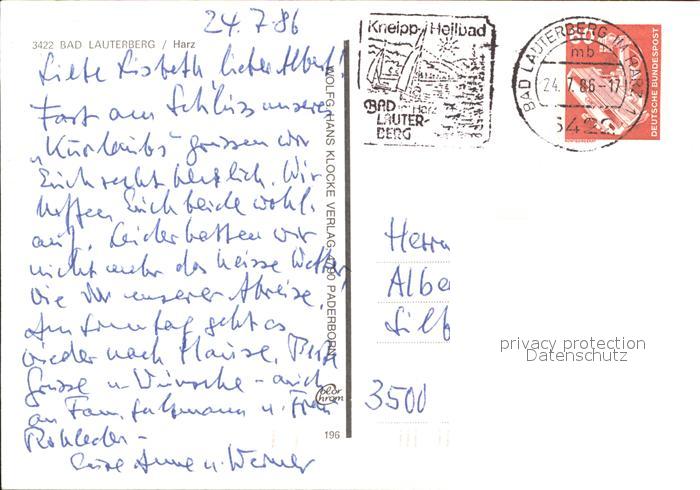 24.7.86
3422 BAD LAUTERBERG / Harz
Liebe Lisbeth lieber Albert!
Fast am Schluss unseres
"Kurlaubs" grüssen wir
Euch recht herzlich. Wir
hoffen Euch beide wohl-
auf. Leider hatten wir
nicht mehr das heisse Wetter
wie vor unserer Abreise.
Am Sonntag geht es
wieder nach Hause. Beste
Grüsse u. Wünsche - auch
an Fam. u. Frau
Rohleder -
Eure Anne u. Werner
WOLFG. HANS KLOCKE VERLAG, 4790 PADERBORN
Color
Chrom
196
Kneipp-Heilbad
BAD
LAUTER-
BERG
im Harz
BAD LAUTERBERG IM HARZ 1
mb
24.7.86-17
3422
DEUTSCHE BUNDESPOST
Herrn
Albe
3500
privacy protection
Datenschutz